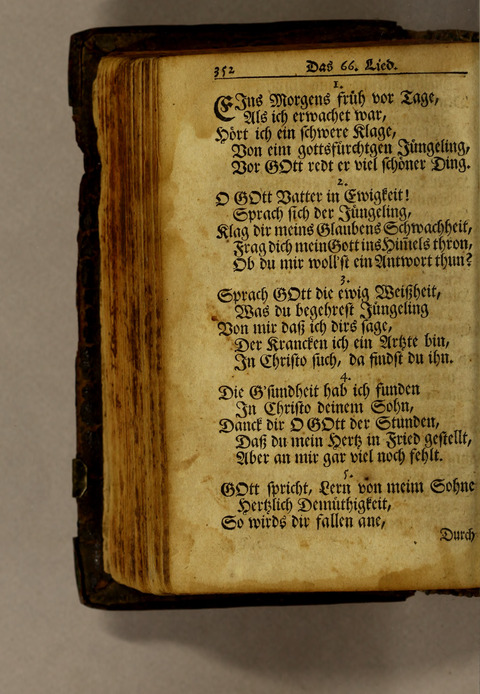 352 Das 66. Lied.
1.
EJns Morgens früh vor Tage,
Als ich erwachet war,
Hört ich ein schwere Klage,
Von eim gottsfürchtgen Jüngeling,
Vor GOtt redt er viel schöner Ding.
2.
O GOtt Vatter in Ewigkeit!
Sprach sich der Jüngeling,
Klag dir meins Glaubens Schwachheit,
Frag dich mein Gott ins Him̃els thron,
Ob du mir woll'st ein Antwort thun?
3.
Sprach GOtt die ewig Weißheit,
Was du begehrest Jüngeling
Von mir daß ich dirs sage,
Der Krancken ich ein Artzte bin,
Jn Christo such, da findst du ihn.
4.
Die G'sundheit hab ich funden
Jn Christo deinem Sohn,
Danck dir O GOtt der Stunden,
Daß du mein Hertz in Fried gestellt,
Aber an mir gar viel noch fehlt.
5.
GOtt spricht, Lern von meim Sohne
Hertzlich Demüthigkeit,
So wirds dir fallen ane,
Durch